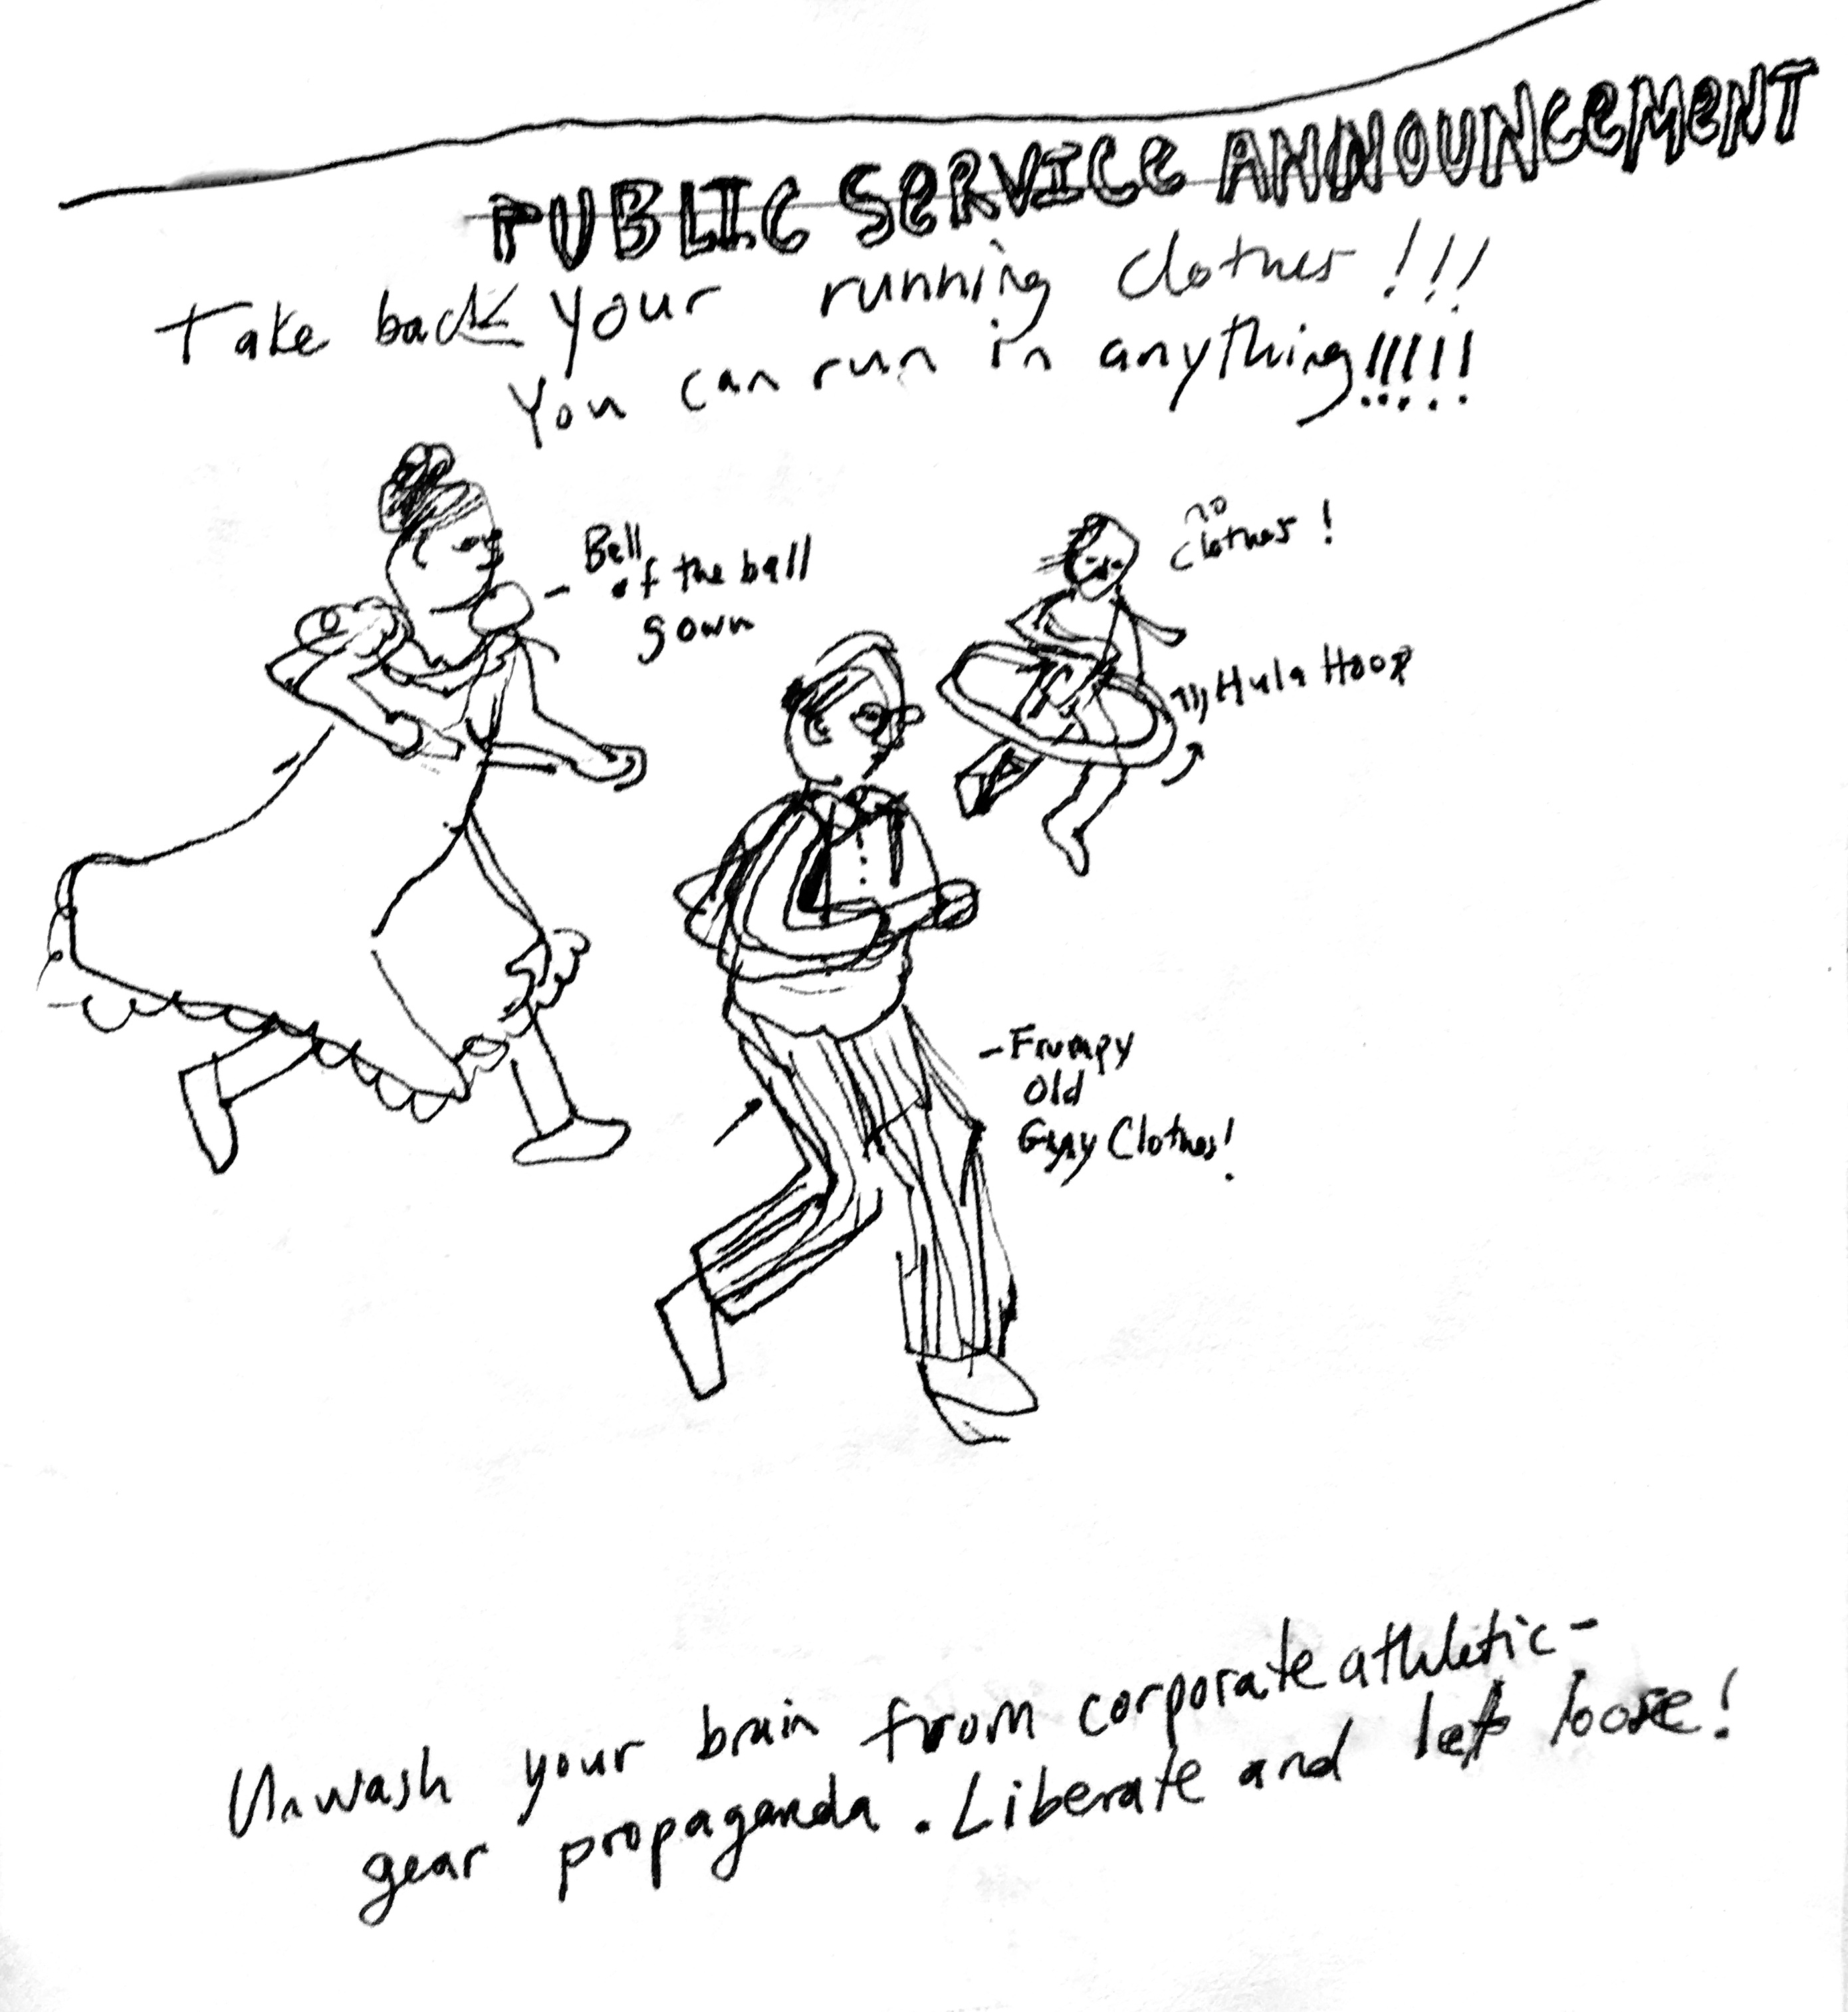 PUBLIC SERVICE ANNOUNCEMENT
Take back your running clothes!!!
You can run in anything!!!!!
Bell
of the ball
gown
no
clothes!
Hula Hoop
- Frumpy
Old
Guy Clothes!
Unwash your brain from corporate athletic-
gear propaganda. Liberate and let loose!